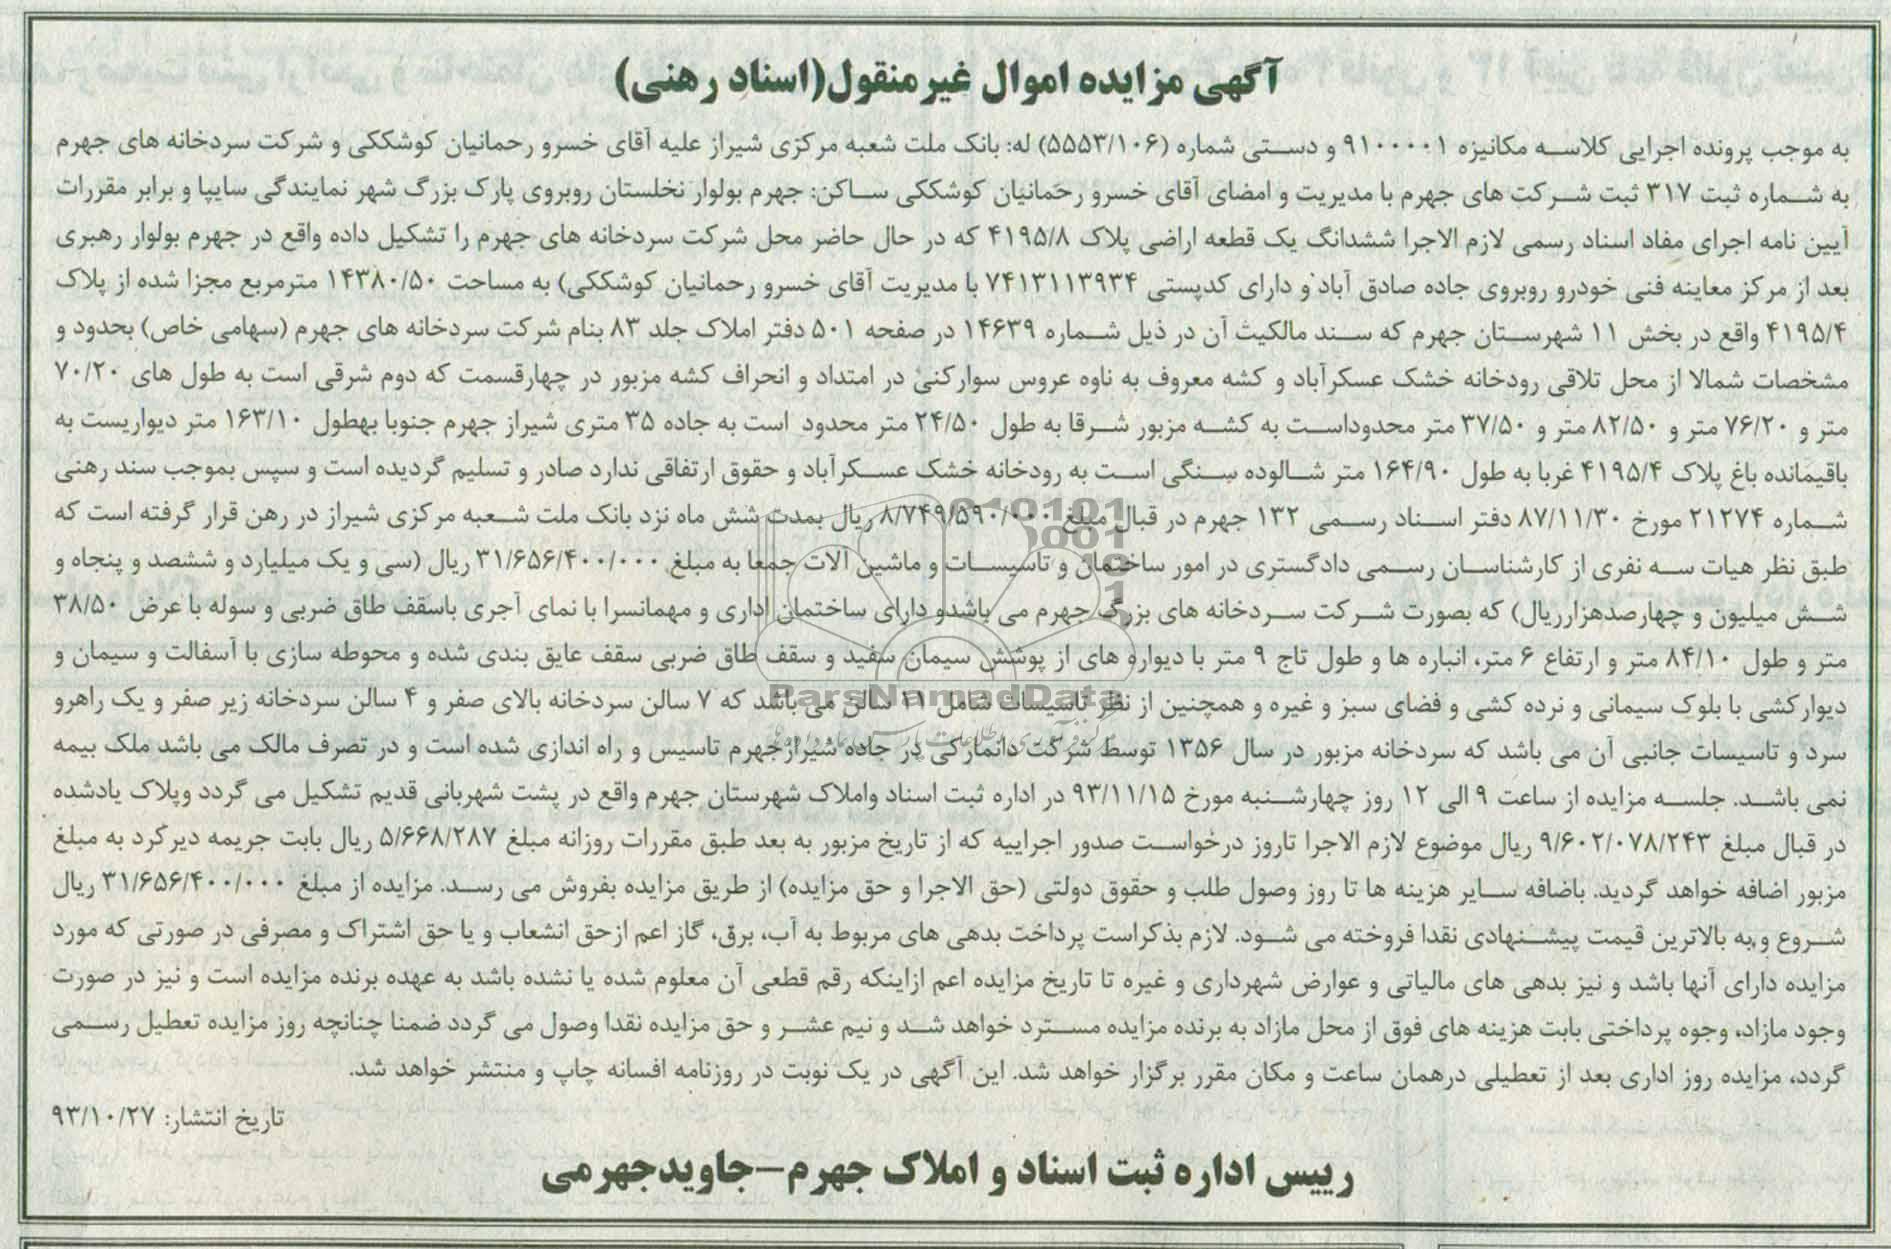 آگهی مزایده اموال غیرمنقول(اسناد رهنی)
به موجب پرونده اجرایی کلاسه مکانیزه ۹۱۰۰۰۰۱ و دستی شماره (۵۵۵۳/۱۰۶) له: بانک ملت شعبه مرکزی شیراز علیه آقای خسرو رحمانیان کوشککی و شرکت سردخانه های جهرم
به شماره ثبت ۳۱۷ ثبت شرکت های جهرم با مدیریت و امضای آقای خسرو رحمانیان کوشککی ساکن: جهرم بولوار نخلستان روبروی پارک بزرگ شهر نمایندگی سایپا و برابر مقررات
آیین نامه اجرای مفاد اسناد رسمی لازم الاجرا ششدانگ یک قطعه اراضی پلاک ۴۱۹۵/۸ که در حال حاضر محل شرکت سردخانه های جهرم را تشکیل داده واقع در جهرم بولوار رهبری
بعد از مرکز معاینه فنی خودرو روبروی جاده صادق آباد و دارای کدپستی ۷۴۱۳۱۱۳۹۳۴ با مدیریت آقای خسرو رحمانیان کوشککی) به مساحت ۱۴۳۸۰/۵۰ مترمربع مجزا شده از پلاک
۴۱۹۵/۴ واقع در بخش ۱۱ شهرستان جهرم که سند مالکیت آن در ذیل شماره ۱۴۶۳۹ در صفحه ۵۰۱ دفتر املاک جلد ۸۳ بنام شرکت سردخانه های جهرم (سهامی خاص) بحدود و
مشخصات شمالا از محل تلاقی رودخانه خشک عسکرآباد و کشه معروف به ناوه عروس سوارکنی در امتداد و انحراف کشه مزبور در چهارقسمت که دوم شرقی است به طول های ۷۰/۲۰
متر و ۷۶/۲۰ متر و ۸۲/۵۰ متر و ۳۷/۵۰ متر محدوداست به کشه مزبور شرقا به طول ۲۴/۵۰ متر محدود است به جاده ۳۵ متری شیراز جهرم جنوبا بهطول ۱۶۳/۱۰ متر دیواریست به
باقیمانده باغ پلاک ۴۱۹۵/۴ غربا به طول ۱۶۴/۹۰ متر شالوده سنگی است به رودخانه خشک عسکرآباد و حقوق ارتفاقی ندارد صادر و تسلیم گردیده است و سپس بموجب سند رهنی
شماره ۲۱۲۷۴ مورخ ۸۷/۱۱/۳۰ دفتر اسناد رسمی ۱۳۲ جهرم در قبال مبلغ ۸/۷۴۹/۵۹۰/۰۰۰ ریال بمدت شش ماه نزد بانک ملت شعبه مرکزی شیراز در رهن قرار گرفته است که
طبق نظر هیات سه نفری از کارشناسان رسمی دادگستری در امور ساختمان و تاسیسات و ماشین آلات جمعا به مبلغ ۳۱/۶۵۶/۴۰۰/۰۰۰ ریال (سی و یک میلیارد و ششصد و پنجاه و
شش میلیون و چهارصدهزارریال) که بصورت شرکت سردخانه های بزرگ جهرم می باشدو دارای ساختمان اداری و مهمانسرا با نمای آجری باسقف طاق ضربی و سوله با عرض ۳۸/۵۰
متر و طول ۸۴/۱۰ متر و ارتفاع ۶ متر، انباره ها و طول تاج ۹ متر با دیواره های از پوشش سیمان سفید و سقف طاق ضربی سقف عایق بندی شده و محوطه سازی با آسفالت و سیمان و
دیوارکشی با بلوک سیمانی و نرده کشی و فضای سبز و غیره و همچنین از نظر تاسیسات شامل ۱۱ سالن می باشد که ۷ سالن سردخانه بالای صفر و ۴ سالن سردخانه زیر صفر و یک راهرو
سرد و تاسیسات جانبی آن می باشد که سردخانه مزبور در سال ۱۳۵۶ توسط شرکت دانمارکی در جاده شیرازجهرم تاسیس و راه اندازی شده است و در تصرف مالک می باشد ملک بیمه
نمی باشد. جلسه مزایده از ساعت ۹ الی ۱۲ روز چهارشنبه مورخ ۹۳/۱۱/۱۵ در اداره ثبت اسناد واملاک شهرستان جهرم واقع در پشت شهربانی قدیم تشکیل می گردد وپلاک یادشده
در قبال مبلغ ۹/۶۰۲/۰۷۸/۲۴۳ ریال موضوع لازم الاجرا تاروز درخواست صدور اجراییه که از تاریخ مزبور به بعد طبق مقررات روزانه مبلغ ۵/۶۶۸/۲۸۷ ریال بابت جریمه دیرکرد به مبلغ
مزبور اضافه خواهد گردید. باضافه سایر هزینه ها تا روز وصول طلب و حقوق دولتی (حق الاجرا و حق مزایده) از طریق مزایده بفروش می رسد. مزایده از مبلغ ۳۱/۶۵۶/۴۰۰/۰۰۰ ریال
شروع و به بالاترین قیمت پیشنهادی نقدا فروخته می شود. لازم بذکراست پرداخت بدهی های مربوط به آب، برق، گاز اعم ازحق انشعاب و یا حق اشتراک و مصرفی در صورتی که مورد
مزایده دارای آنها باشد و نیز بدهی های مالیاتی و عوارض شهرداری و غیره تا تاریخ مزایده اعم ازاینکه رقم قطعی آن معلوم شده یا نشده باشد به عهده برنده مزایده است و نیز در صورت
وجود مازاد، وجوه پرداختی بابت هزینه های فوق از محل مازاد به برنده مزایده مسترد خواهد شد و نیم عشر و حق مزایده نقدا وصول می گردد ضمنا چنانچه روز مزایده تعطیل رسمی
گردد، مزایده روز اداری بعد از تعطیلی درهمان ساعت و مکان مقرر برگزار خواهد شد. این آگهی در یک نوبت در روزنامه افسانه چاپ و منتشر خواهد شد.
تاریخ انتشار: ۹۳/۱۰/۲۷
رییس اداره ثبت اسناد و املاک جهرم-جاویدجهرمی
ParsNamadData